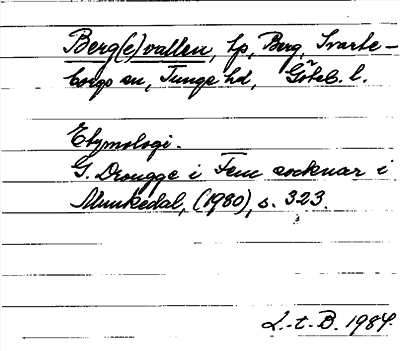 Berg(e)vallen, lp, Berg, Svarte-
borgs sn, Tunge hd, Göteb. l.
Etymologi.
G. Drougge i Fem socknar i
Munkedal, (1980), s. 323.
L.-t.-B. 1984